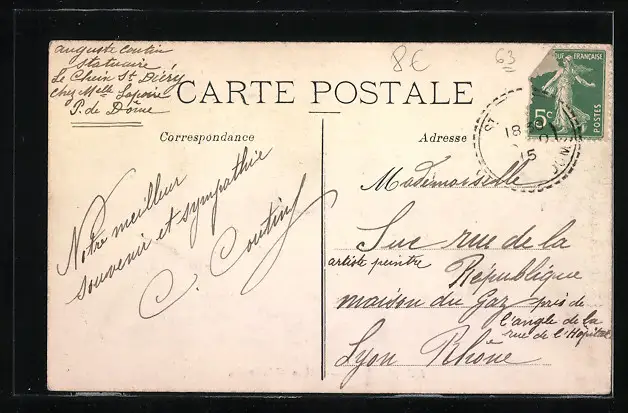 auguste coutin
statuaire
Le Cheix St Diéry
chez Melle
P. de Dôme
8€
63
CARTE POSTALE
Correspondance
Adresse
RÉPUBLIQUE FRANÇAISE
5c
POSTES
ST
18
15
Notre meilleur
souvenir et sympathie
C. Coutin
Mademoiselle
Luc rue de la
artiste peintre
République
maison du Gaz près de
l'angle de la
rue de l'Hôpital
Lyon Rhône